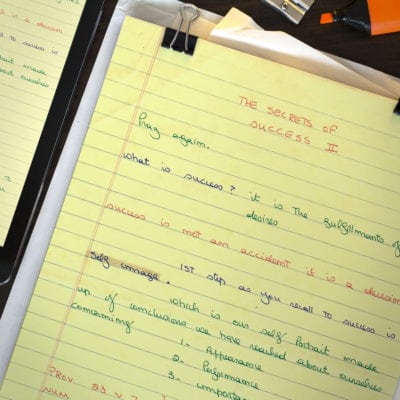 THE SECRETS OF
SUCCESS II
Pray again.
What is success? it is the fulfillments of
desires
success is not am accident it is a decision
self image. 1st step as you recall to success is
which is our self Portrait made
up of conclusions we have reached about ourselves
concerning
1. Appearance
2. Performance
3. importance
PROV 23 V 7
a decision
to success is
Portrait made
about ourselves